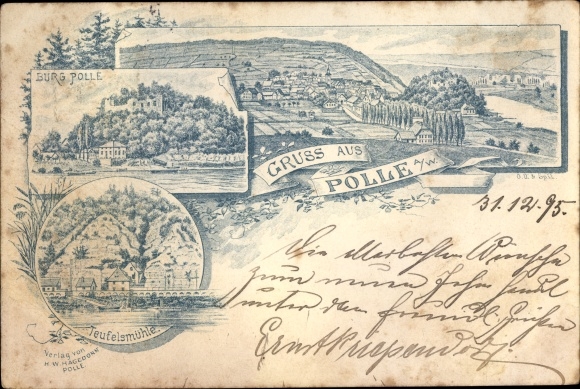 BURG POLLE
GRUSS AUS
POLLE A/W.
31.12.95.
Die allerbesten Wünsche
zum neuen Jahre sendet
unter den freundl. Grüßen
Ernst
Teufelsmühle.
Verlag von
H. W. HAGEDORN
POLLE